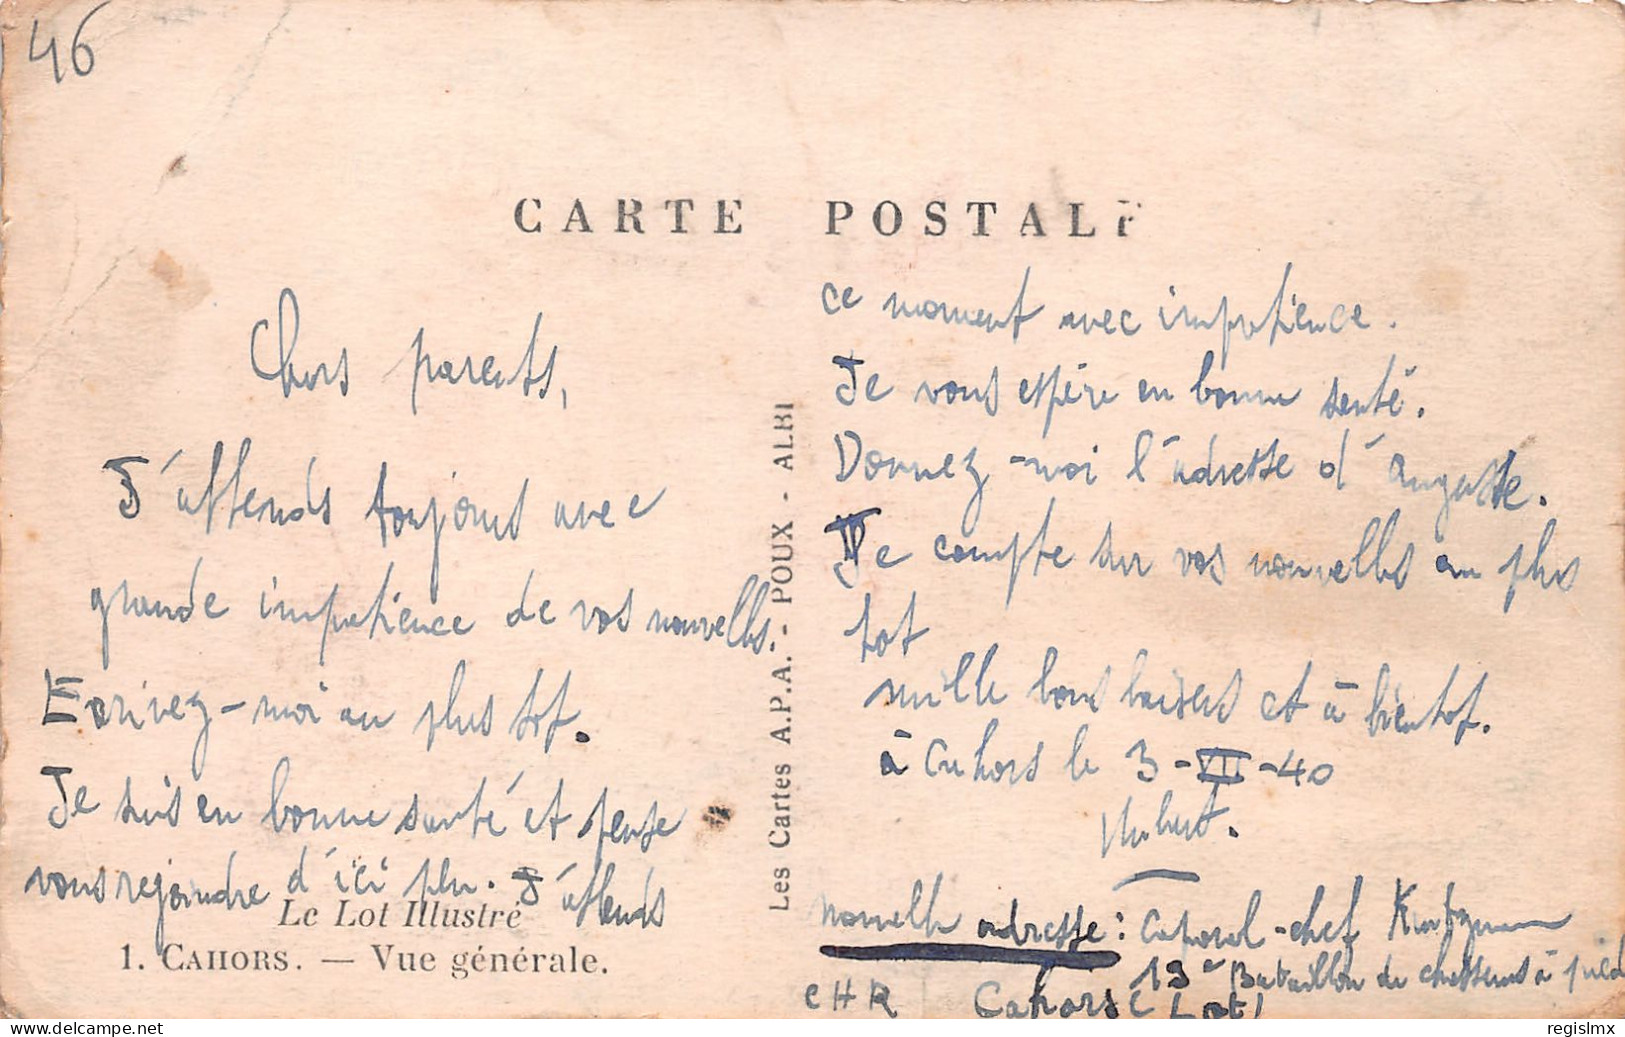 46
CARTE POSTALE
Chers parents,
J'attends toujours avec
grande impatience de vos nouvelles.
Ecrivez-moi au plus tot.
Je suis en bonne santé et pense
vous rejoindre d'ici plu. J'attends
Le Lot Illustré
1. CAHORS. — Vue générale.
Les Cartes A.P.A. - POUX - ALBI
ce moment avec impatience.
Je vous espère en bonne santé.
Donnez-moi l'adresse d'Auguste.
Je compte sur vos nouvelles au plus
tot
mille bons baisers et à bientot.
à Cahors le 3-VII-40
Hubert.
nouvelle adresse: Caporal-chef
13e Bataillon de chasseurs à pied
CHR Cahors (Lot)
delcampe.net
regislmx